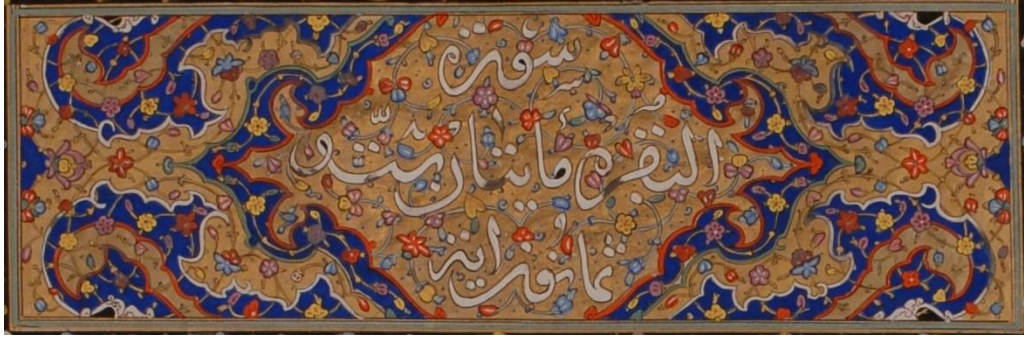 سورة
البقره مايتان ستّ و
ثمانون اية